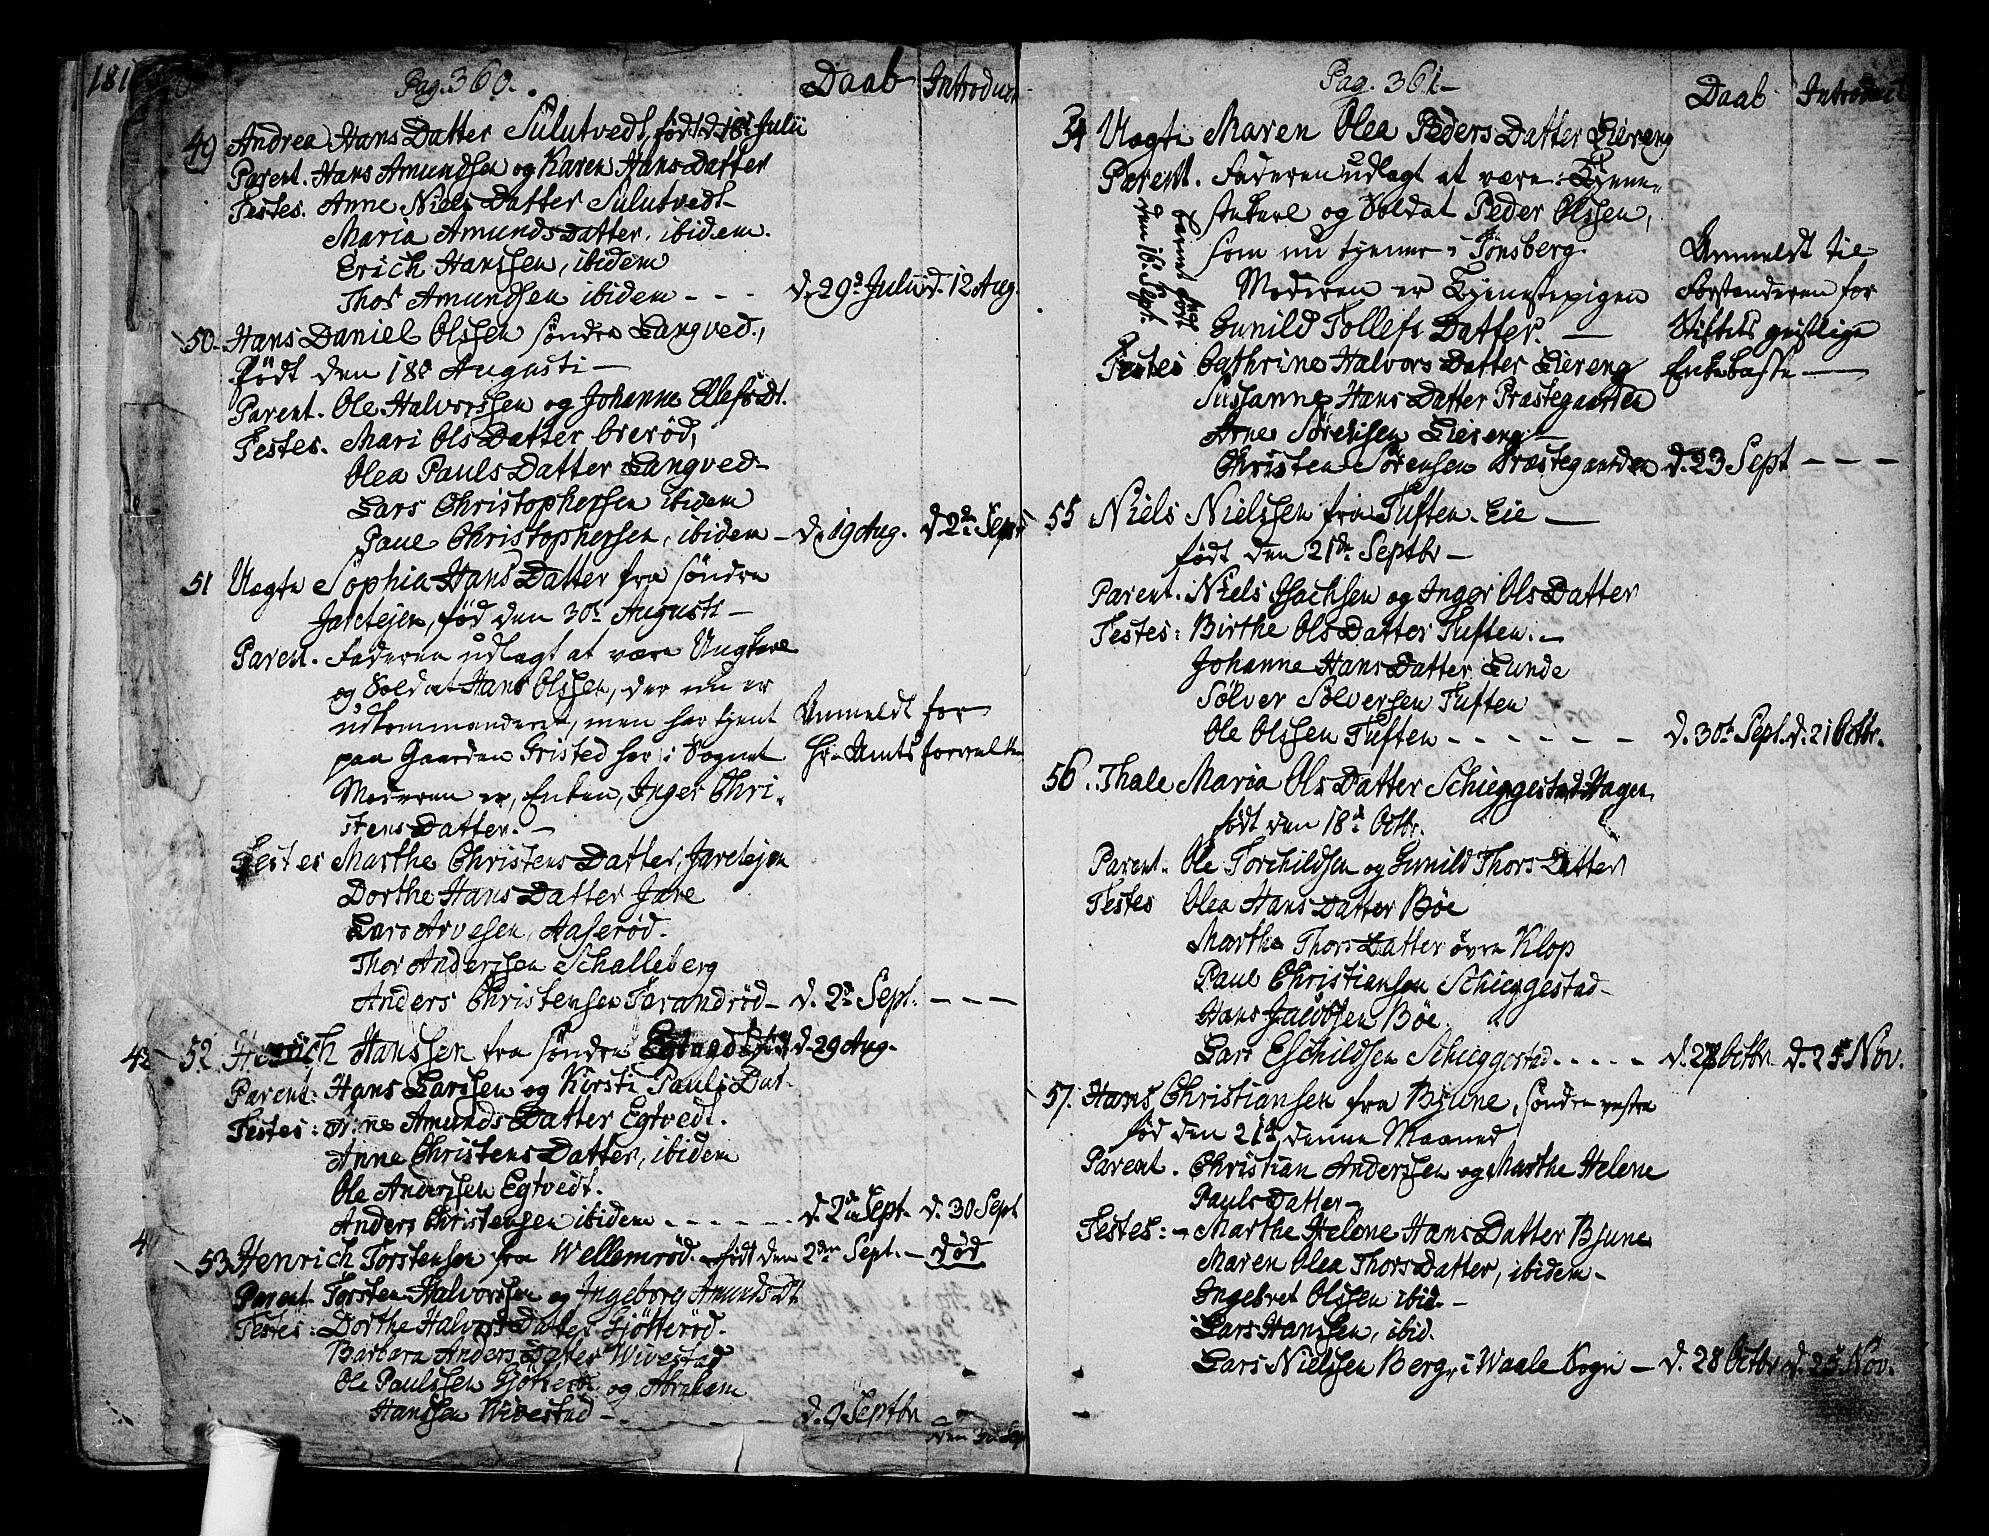 181
Pag. 360.
Daab Introduct
49 Andrea Hans Datter Sulutvedt, født d. 18d Julii
Parent. Hans Amundsen og Karen Hans Datter
Testes. Anne Niels Datter Sulutvedt
Maria Amunds Datter, ibidem.
Erich Hanssen, ibidem
Thor Amundsen ibidem - - - d. 29d Julii d. 12 Aug.
50 Hans Daniel Olssen søndre Langved,
født den 18d Augusti —
Parent. Ole Halvorssen og Johanne Ellefs Dt.
Testes. Mari Ols Datter Ørerød,
Olea Pauls Datter Langved
Lars Christophersen ibidem
Paul Christophersen, ibidem — d. 19 Aug. d. 2d Sept
51 Uægte Sophia Hans Datter fra søndre
Jaretejen, fød den 30d Augusti —
Paren. Faderen udlagt at være Ungkarl
og Soldat Hans Olssen, der nu er
udkommanderet, men har tjent Anmeldt for
paa Gaarden Gristed her i Sognet Hr. Amtsforvalt
Moderen er, Enken, Inger Chri-
stens Datter. —
Testes Marthe Christens Datter, Jaretejen
Dorthe Hans Datter Jare
Lars Arvesen, Aaserød.
Thor Anderssen Schalleberg
Anders Christensen Farandrød — d. 2d Sept. — — —
42 52 Hans Hanssen fra søndre Egtved fød d. 29 Aug.
Parent: Hans Larssen og Kirsti Pauls Dat-
Testes: Anne Amunds Datter Egtvedt.
Anne Christens Datter, ibidem
Ole Anderssen Egtvedt.
Anders Christensen ibidem - - - - - d. 2d Sept. d. 30 Sept
4
53 Henrich Torstensen fra Wellemrød. født den 2den Sept. — død
Parent Torsten Halvorssen og Ingeborg Amunds Dt
Testes: Dorthe Halvors Datter Gjøtterød.
Barbara Anders Datter Wivestad
Ole Paulssen Gjøtterød og Abraham
Hanssen Wivestad — - - - d. 9 Septbr den 30 Sep
Pag. 361.
Daab Introduct
54 Uægte Maren Olea Peders Datter Liereng
Parent. Faderen udlagt at være: Tjene-
stekarl og Soldat Peder Olssen,
som nu tjener i Tønsberg.
Moderen er Tjenestepigen
Gunild Tollefs Datter. —
Barnet født
den 16. Sept.
Anmeldt til
Forstanderen for
Stiftets geistlige
Enkekasse —
Testes Cathrine Halvors Datter Liereng
Susanne Hans Datter Præstegaarden
Arne Sørensen Liereng —
Christen Sørensen Præstegaarden d. 23 Sept — — —
55 Niels Nielssen fra Tuften. Eie —
født den 21de Septbr —
Parent. Niels Isachsen og Inger Ols Datter
Testes: Birthe Ols Datter Tuften. —
Johanne Hans Datter Lunde
Sølver Sølversen Tuften
Ole Olssen Tuften - - - - - - d. 30d Sept. d. 21 Octbr.
56. Thale Maria Ols Datter Schieggestad Hagen,
født den 18d Octbr.
Parent. Ole Torchildsen og Gunild Thors Datter
Testes Olea Hans Datter Bøe
Marthe Thors Datter øvre Klop
Paul Christiansen Schieggestad —
Hans Jacobsen Bøe
Lars Eschildsen Schieggestad - - - - - d. 28 Octbr d. 25 Nov.
57. Hans Christiansen fra Bjune, søndre vestre
fød den 21de denne Maaned
Parent. Christian Anderssen og Marthe Helene
Pauls Datter —
Testes: — Marthe Helene Hans Datter Bjune
Maren Olea Thors Datter, ibidem —
Ingebret Olssen ibid. —
Lars Hanssen, ibid.
Lars Nielssen Berg, i Waale Sogn — d. 28 Octbr d. 25 Nov.